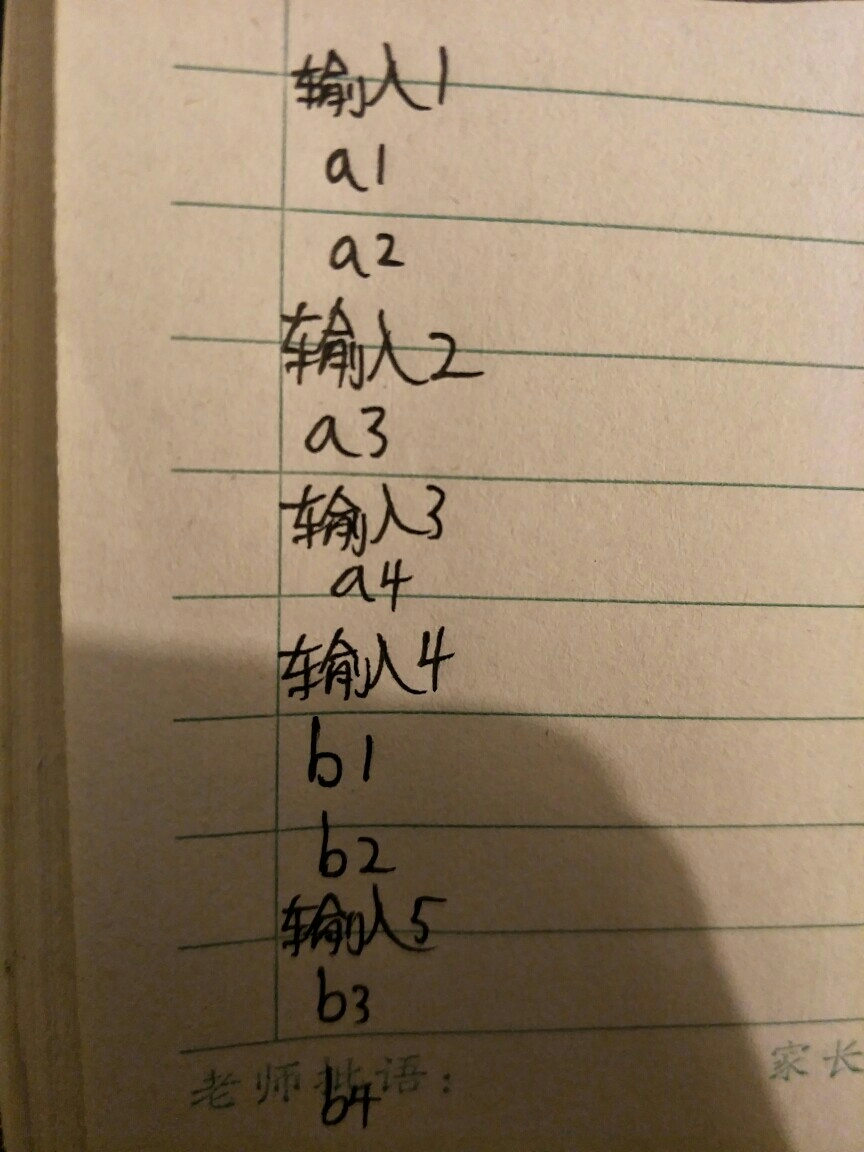 输入1
a1
a2
输入2
a3
输入3
a4
输入4
b1
b2
输入5
b3
老师批语：
家长
b4